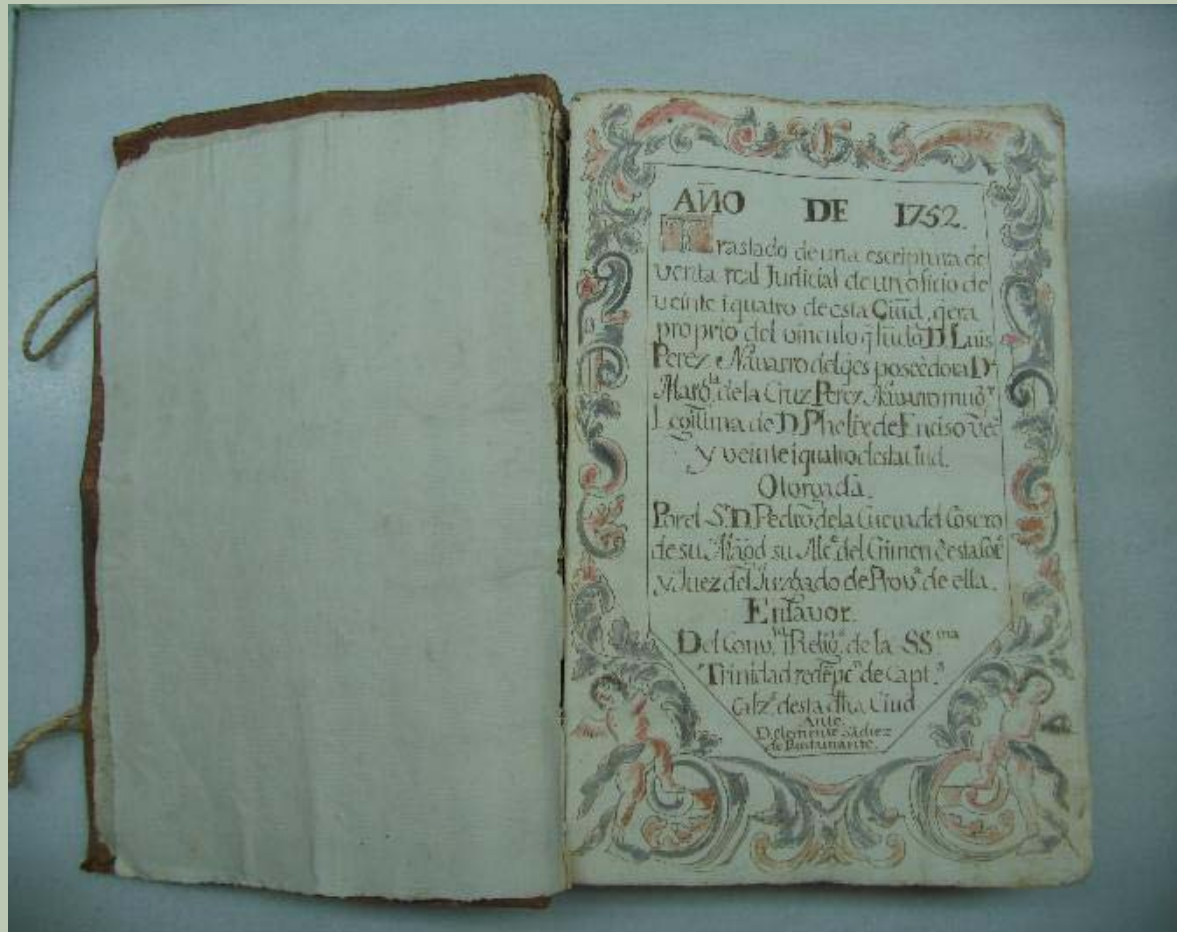 AÑO DE 1752.
Traslado de una escriptura de
venta real Judicial de un oficio de
veinte i quatro de esta Ciud. q̃ era
proprio del vinculo q̃ fũdo D. Luis
Perez Nauarro del q̃ es posçedora Dª
Margᵗᵃ de la Cruz Perez Nauarro mugʳ
Legitima de D. Phelix de Enciso veᶜ
y veinte i quatro desta ciud.
Otorgada.
Por el Sʳ D. Pedro de la Cueva del Cosero
de su Magd su Alcᵉ del Crimen ð esta
y Juez del Juzgado de Provª de ella.
En fauor.
Del Convᵗᵒ i Religⁿ de la SSᵐᵃ
Trinidad redẽpcⁿ de Captˢ
Calzˢ desta dha Ciud
Ante
D. Clemente
de Bustamante.